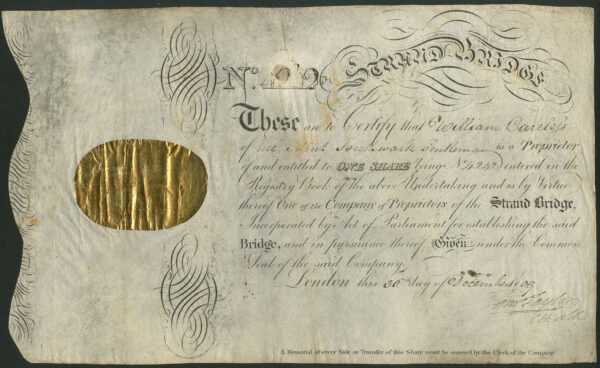 No. 4242
STRAND BRIDGE
These are to Certify that William Careless
of the Southwark Gentleman is a Proprietor
of and entitled to ONE SHARE being No. 4242 entered in the
Registry Book of the above Undertaking and is by Virtue
thereof One of the Company of Proprietors of the Strand Bridge,
Incorporated by Act of Parliament for establishing the said
Bridge, and in pursuance thereof Given under the Common
Seal of the said Company
London this 30th day of December 1809
Clerk
A Memorial of every Sale or Transfer of this Share must be entered by the Clerk of the Company